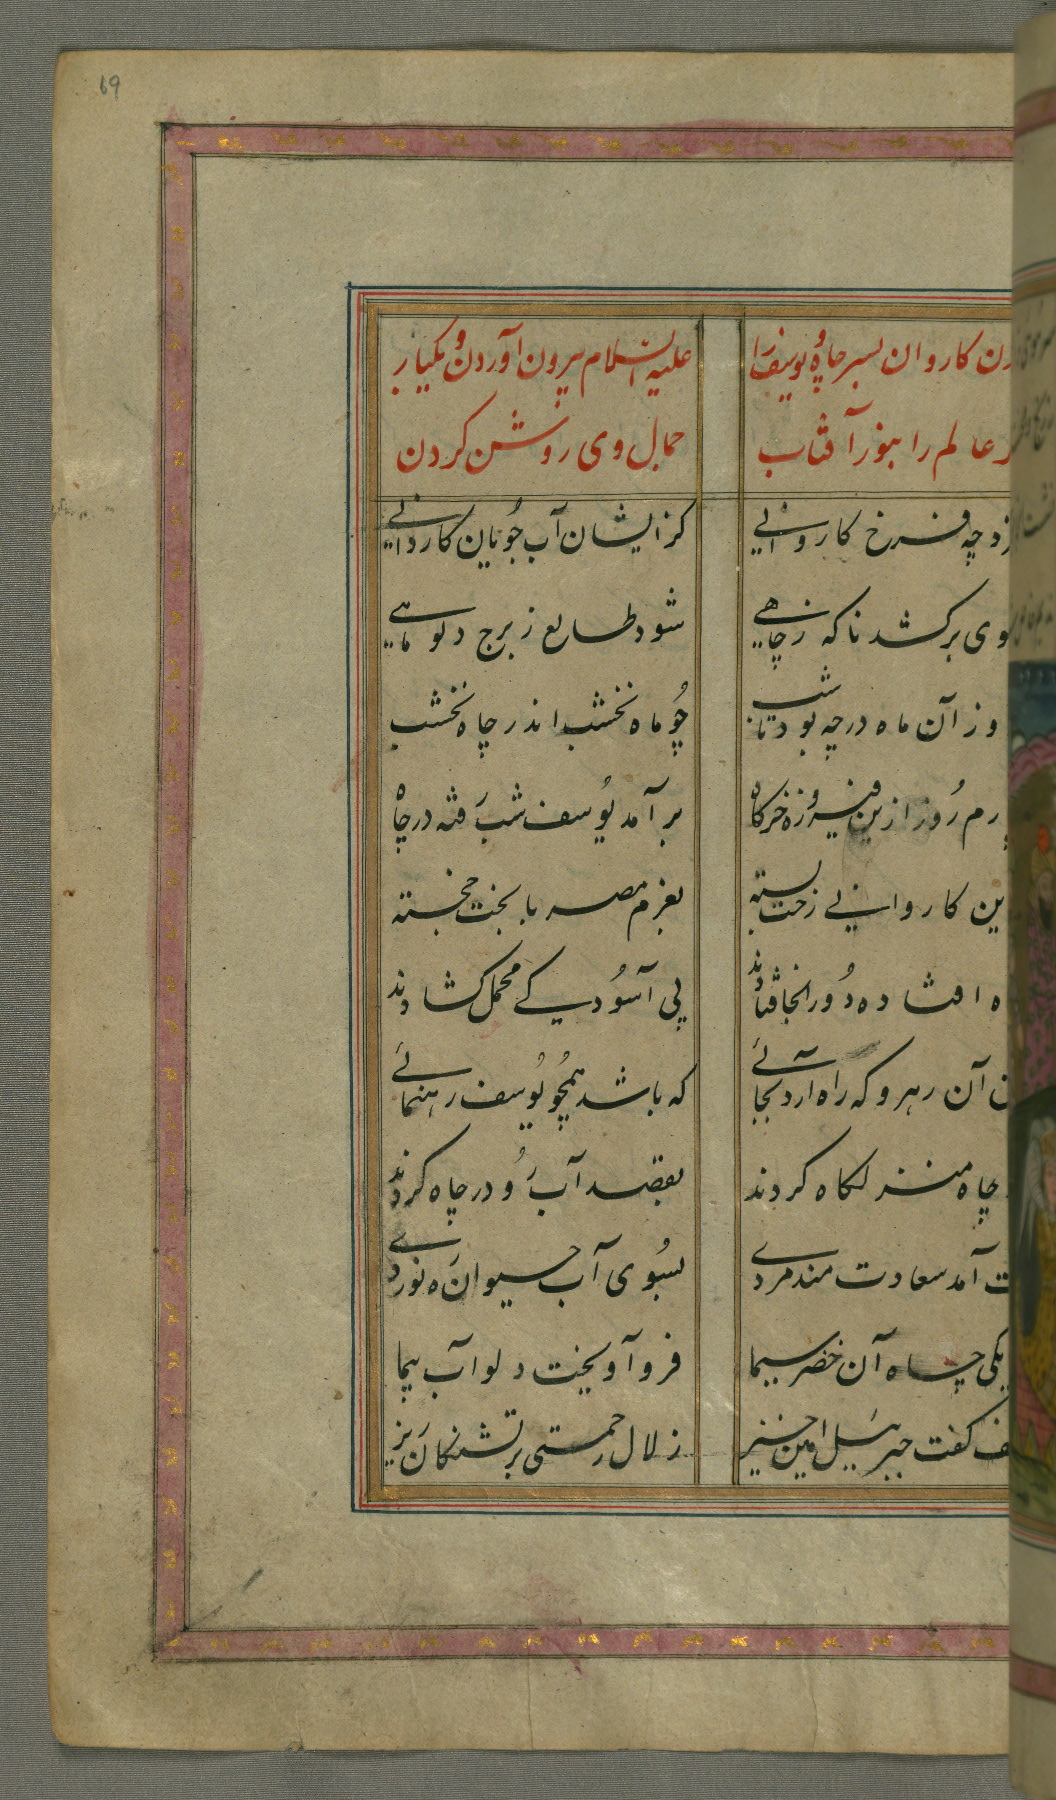 69
رن کاروان بسر چاه و یوسف را علیه السلام بیرون آوردن و یکبار
عالم را بنور آفتاب جمال وی روشن کردن
چه فرخ کاروانی کز ایشان آب جویان کاردانی
برکشد ناکه ز چاهی شود طالع ز برج دلو ماهی
وز آن ماه در چه بود تا شب چو ماه نخشب اندر چاه نخشب
رم روز ازین فیروزه خرکاه بر آمد یوسف شب رفته در چاه
ین کاروانی رخت بسته بعزم مصر با بخت خجسته
ه افتاده دور انجا فتادند پی آسودکی محمل کشادند
آن رهرو که راه ارد بجائی که باشد همچو یوسف رهنمائی
چاه منزلکاه کردند بقصد آب رو در چاه کردند
ت آمد سعادتمند مردی بسوی آب حیوان ره نوردی
یکی چاه آن خضر سیما فرو آویخت دلو آب پیما
ف کفت جبرئیل امین خیز زلال رحمتی بر تشنکان ریز